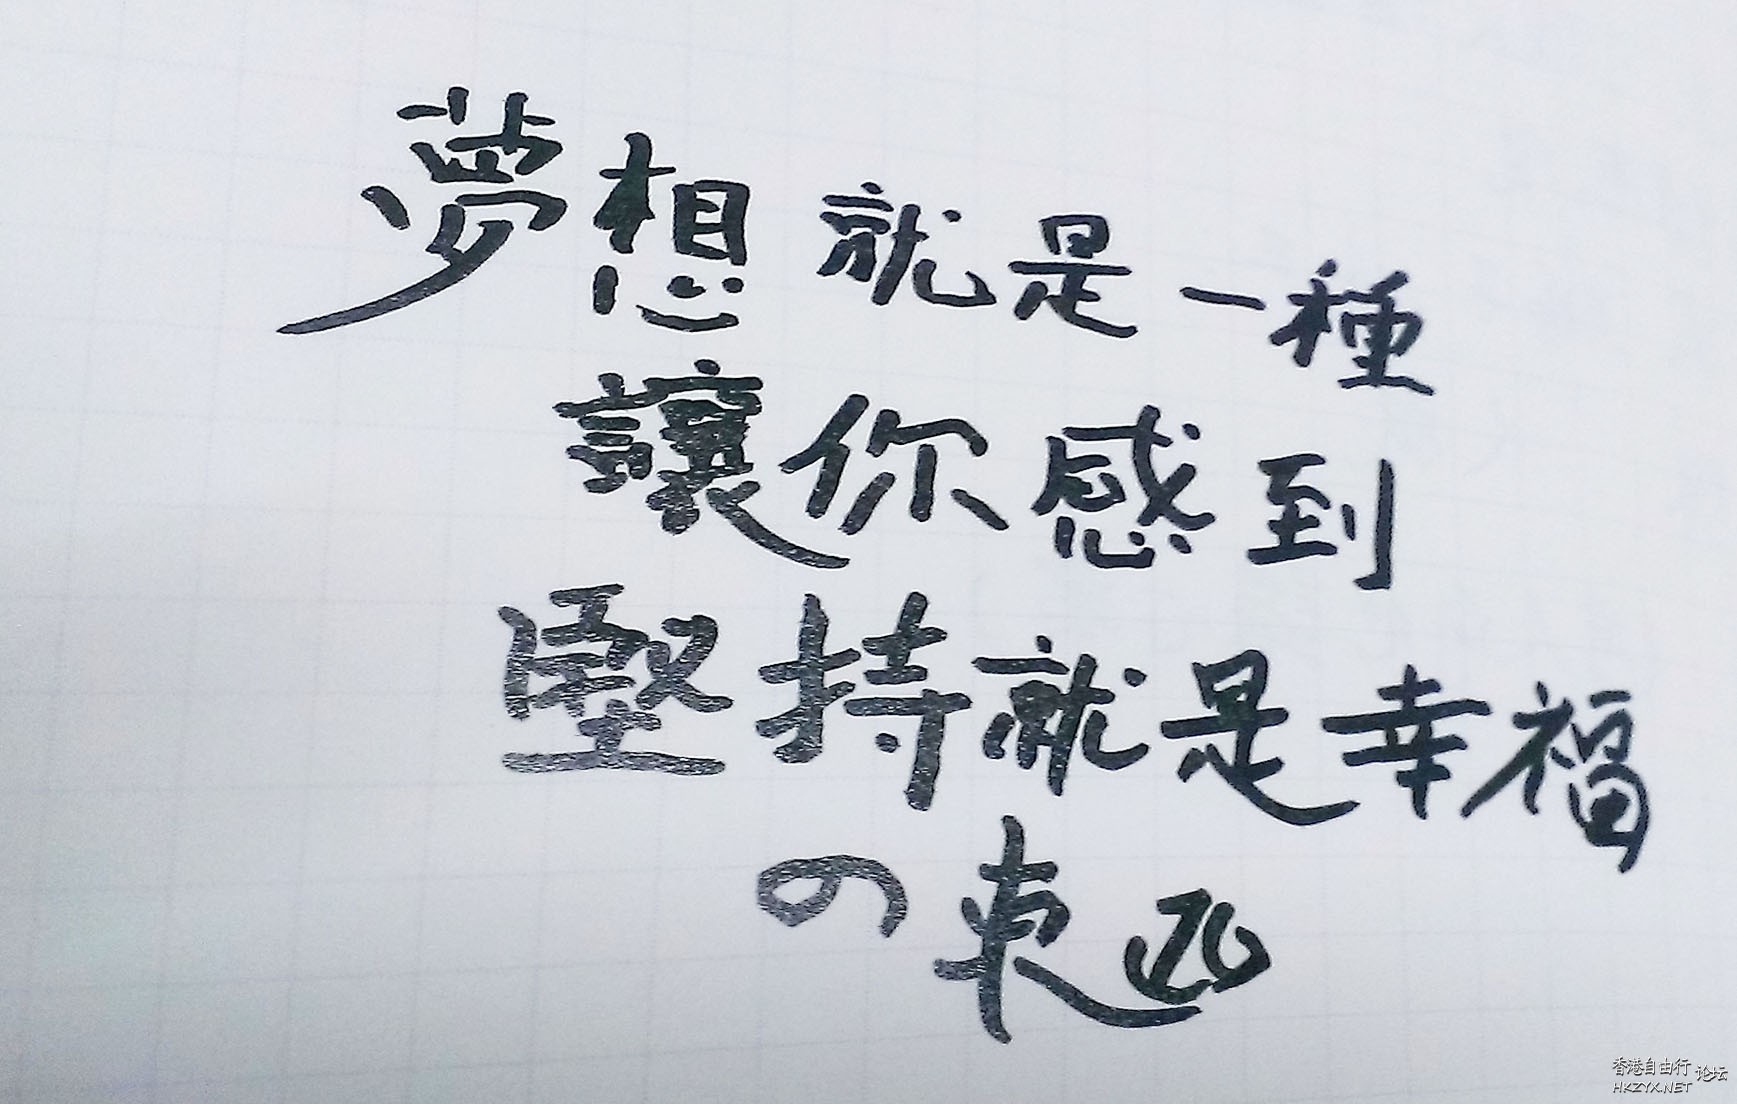 夢想就是一種
讓你感到
堅持就是幸福
の東西
香港自由行论坛
HKZYX.NET